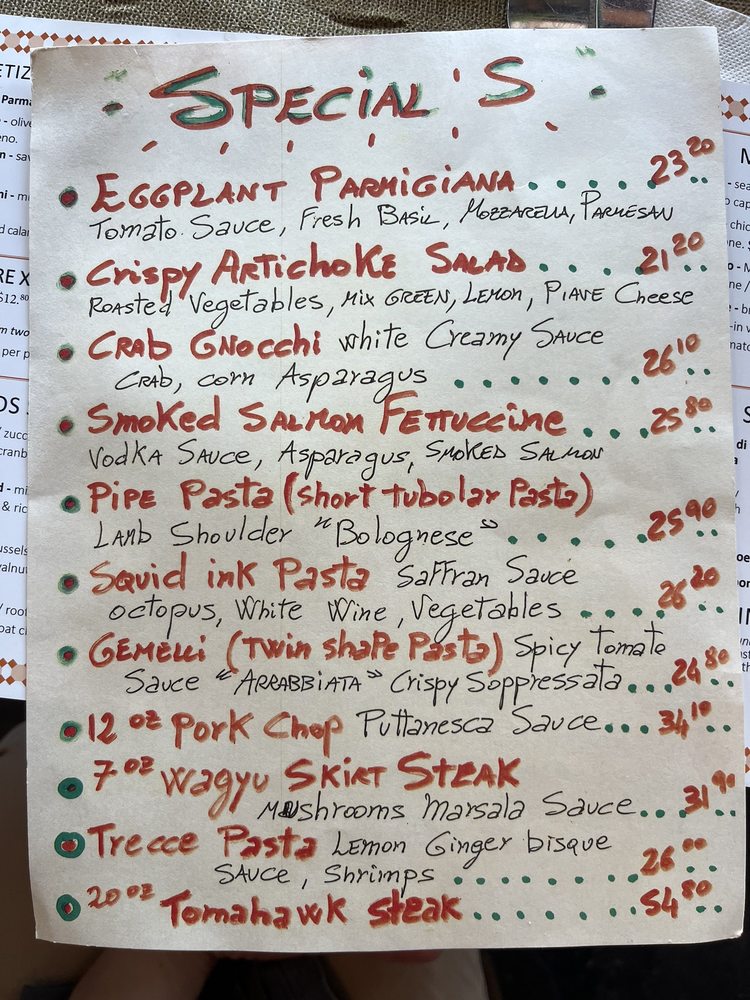 SPECIAL'S
EGGPLANT PARMIGIANA........23 20
Tomato. Sauce, Fresh BASIL, MOZZARELLA, PARMESAN
Crispy ARTICHOKE SALAD........21 20
ROASTED Vegetables, MIX GREEN, LEMON, PIAVE Cheese
CRAb GNOCChi white Creamy SAUCE
CRAB, corn Asparagus........26 10
Smoked SALMON FETTUCCINE........25 80
VODKA SAUCE, Asparagus, SMOKED SALMON
PIPE Pasta (short tubolar Pasta)
LAMB Shoulder "Bolognese"........25 90
Squid ink Pasta Saffran Sauce
octopus, White Wine, Vegetables........26 20
GEMELLI (TWIN shAPE Pasta) Spicy Tomate
Sauce "ARRABBIATA" Crispy Soppressata........24 80
12 oz Pork Chop Puttanesca Sauce........34 10
7 oz Wagyu SKIRT STEAK
MUshrooms Marsala Sauce........31 90
Trecce Pasta LEMON Ginger bisque
SAUCE, Shrimps........26 00
20 oz Tomahawk steak........54 80
ETIZ
Parma
- olive
eno.
- sav
calar
RE X
$12.80
m two
per p
OS
/ zucc
cranb
& ric
ussels
/ roof